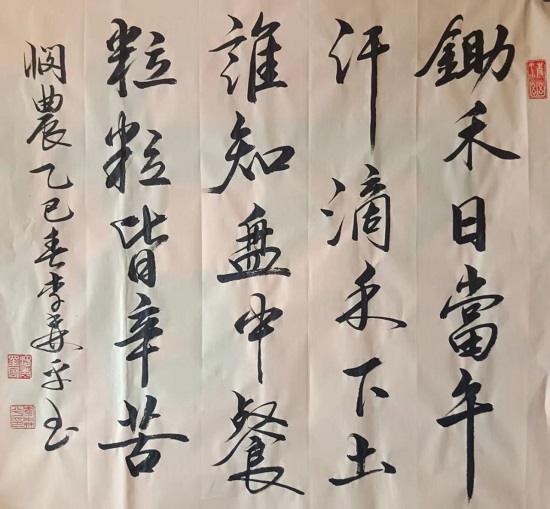 鋤禾日當午
汗滴禾下土
誰知盘中餐
粒粒皆辛苦
悯農乙巳春李平书